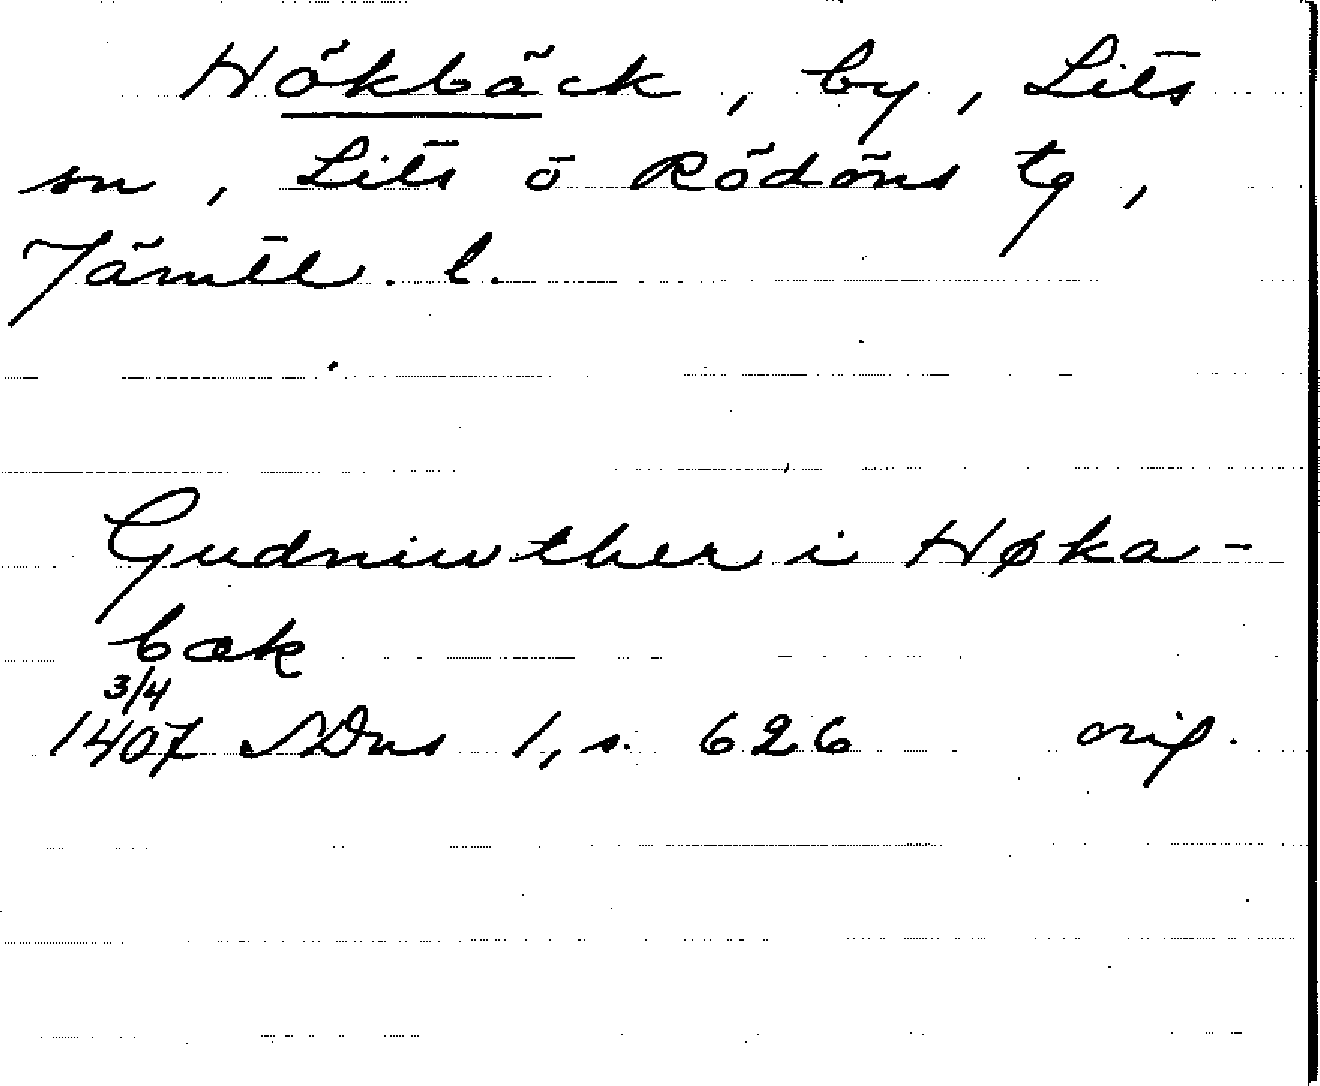 Hökbäck, by, Lits
sn, Lits o Rödöns tg,
Jämtl. l.
Gudniuther i Høka-
bæk
3/4
1407 SDns 1, s. 626 orig.